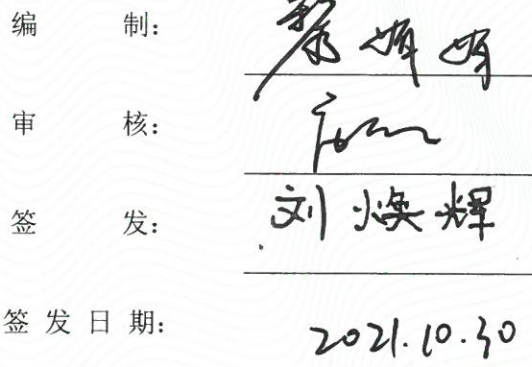 编 制：娟娟
审 核：
签 发：刘焕辉
签 发 日 期：2021.10.30